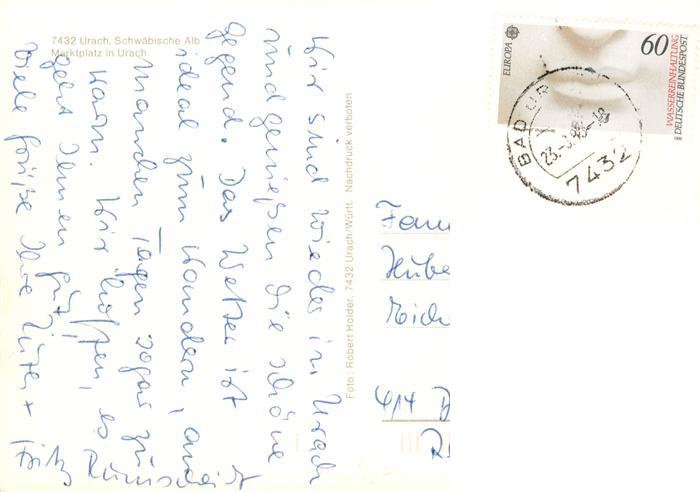 7432 Urach, Schwäbische Alb
Marktplatz in Urach
Wir sind wieder in Urach
und genießen die schöne
Gegend. Das Wetter ist
ideal zum Wandern, an
manchen Tagen sogar zu
warm. Wir hoffen, es
geht Ihnen gut
Viele Grüße Ihre
Fritz
Foto: Robert Holder, 7432 Urach/Württ. Nachdruck verboten
EUROPA
60
WASSERREINHALTUNG
DEUTSCHE BUNDESPOST
BAD UR
7432
Fam
Hube
414 D